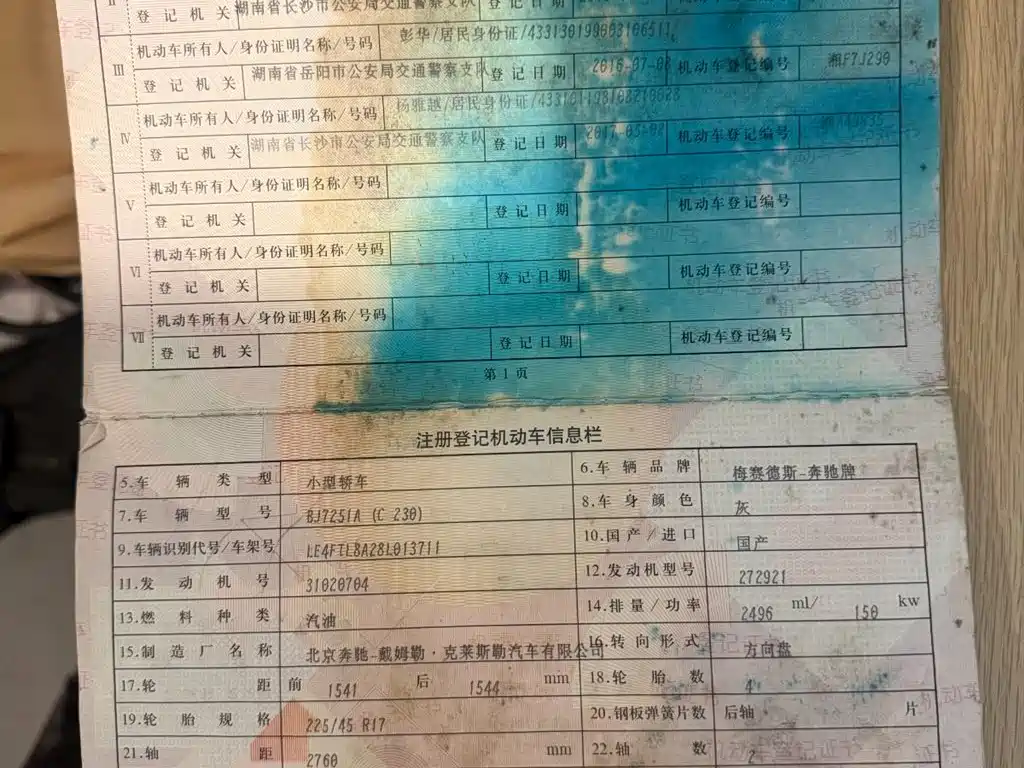 II 登记机关 湖南省长沙市公安局交通警察支队 登记日期 机动车登记编号
III 机动车所有人/身份证明名称/号码 彭华/居民身份证/
登记机关 湖南省岳阳市公安局交通警察支队 登记日期 2016-07-08 机动车登记编号 湘F7J290
IV 机动车所有人/身份证明名称/号码 杨雅越/居民身份证/
登记机关 湖南省长沙市公安局交通警察支队 登记日期 2017-03-02 机动车登记编号
V 机动车所有人/身份证明名称/号码
登记机关 登记日期 机动车登记编号
VI 机动车所有人/身份证明名称/号码
登记机关 登记日期 机动车登记编号
VII 机动车所有人/身份证明名称/号码
登记机关 登记日期 机动车登记编号
第1页
注册登记机动车信息栏
5.车辆类型 小型轿车 6.车辆品牌 梅赛德斯-奔驰牌
7.车辆型号 BJ7251A (C 230) 8.车身颜色 灰
9.车辆识别代号/车架号 LE4FTL8A28L013711 10.国产/进口 国产
11.发动机号 31020704 12.发动机型号 272921
13.燃料种类 汽油 14.排量/功率 2496 ml/ 150 kw
15.制造厂名称 北京奔驰-戴姆勒·克莱斯勒汽车有限公司 16.转向形式 方向盘
17.轮距 前 1541 后 1544 mm 18.轮胎数 4
19.轮胎规格 225/45 R17 20.钢板弹簧片数 后轴 片
21.轴距 2760 mm 22.轴数 2